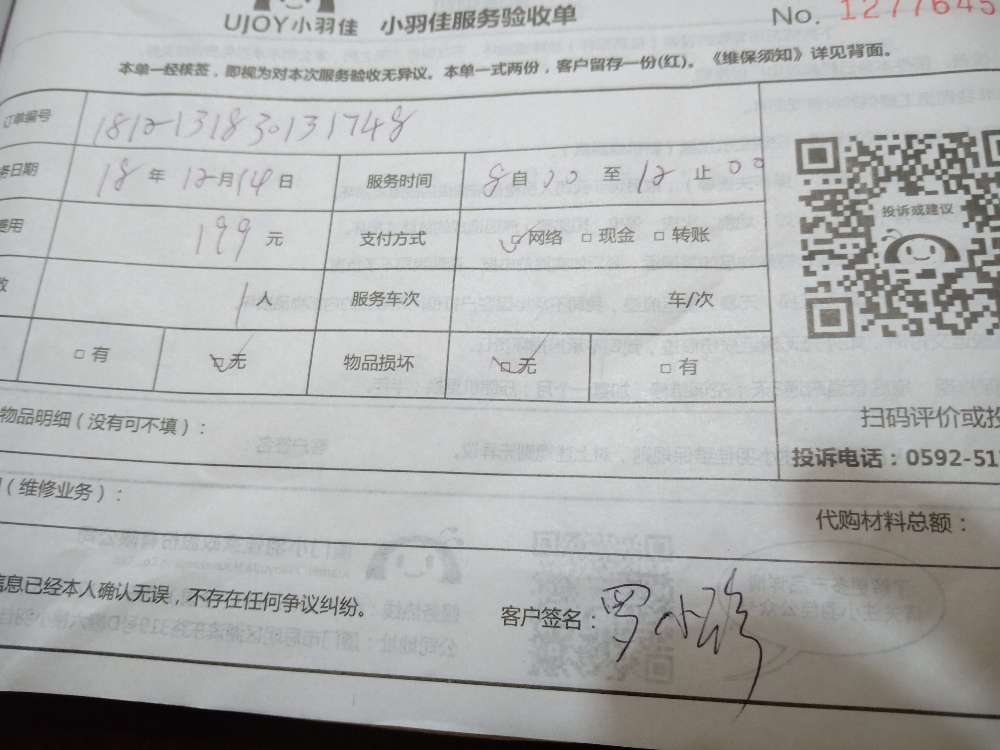 UJOY小羽佳 小羽佳服务验收单 No. 1277645
本单一经核签，即视为对本次服务验收无异议。本单一式两份，客户留存一份(红)。《维保须知》详见背面。
订单编号 1812131830131748
务日期 18年12月14日 服务时间 8自30至12止00
费用 199元 支付方式 □网络 □现金 □转账
数 1人 服务车次 车/次
□有 □无 物品损坏 □无 □有
投诉或建议
扫码评价或投
物品明细（没有可不填）：
投诉电话：0592-51
（维修业务）：
代购材料总额：
信息已经本人确认无误，不存在任何争议纠纷。
客户签名：罗小